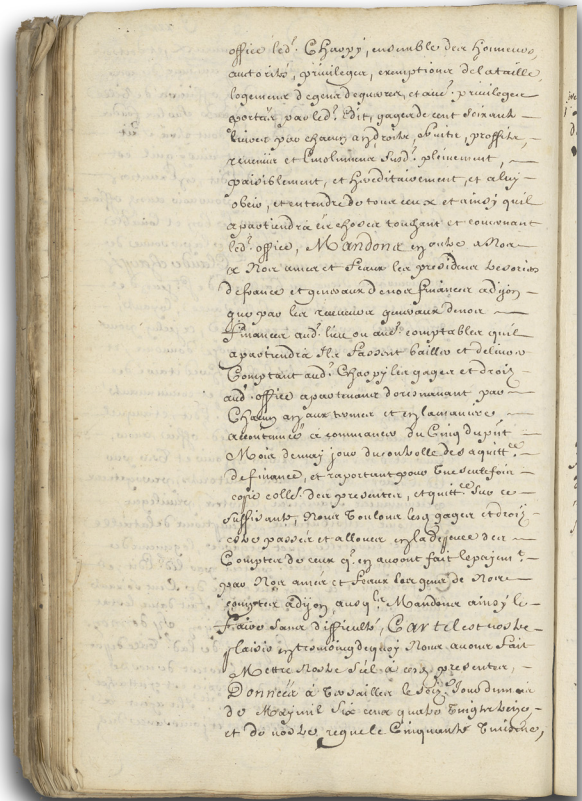 office led.t Chappÿ, ensemble des honneurs,
autorité, privileges, exemptions de la taille,
logement de gens de guerre, et aue. privileges
portés par led. Edit, gages de cent soixante
livres par chacun an, droits, fruits, proffits,
revenus et Emolumens susd. plainement,
paisiblement, et hereditairement, et a luy
obeir, et entendre de tous ceux et ainsy quil
apartiendra es choses touchant et concernant
led.t office, Mandons en outre a Nos
amez et Feaux les presidens tresoriers
de france et generaux de nos finances a dijon
que par les receveurs generaux de nos
Finances aud. lieu ou aue. comptables quil
apartiendra Ils Fassent bailler et delivrer
Comptant aud. Chappy les gages et droits
aud. office apartenans doresnavant, par
Chacun an, aux termes et en la maniere
accoutumée a commancer du Cinq du pnt
Mois de may jour du controlle des a quitt.ce
de finance, et raportant pour Une seule fois
copie coll.e des presentes, et quitt.ce sur ce
suffisante, Nous voulons lesq gages et droits
estre passez et allouez en la depence des
Comptes de ceux q.i en auront fait le payem.t
par Nos amez et Feaux les gens de Nos
comptes a dijon, ausq.ls Mandons ainsy le
Faire sans difficulté, Car tel est nostre
plaisir, en tesmoing de quoy Nous avons fait
Mettre Nostre Scel a ces presentes,
Donnés a Versailles le jour du mois
de May mil six cens quatre vingt treize
et de nostre regne le Cinquante Uniesme,